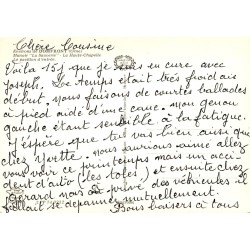 Chère Cousine
Voilà 15j que je suis en cure avec
Joseph. Le temps était très froid au
début, nous faisons de courtes ballades
à pied aidé d'une canne. mon genou
gauche étant sensible à la fatigue.
J'espère que tout va bien ainsi que
chez Yvette. nous aurions aimé aller
vous voir ce printemps mais un acci
dent d'auto (les toles) et ensuite chez
Gérard nous a privé des véhicules il
fallait se dépanner mutuellement.
Bons baisers à tous